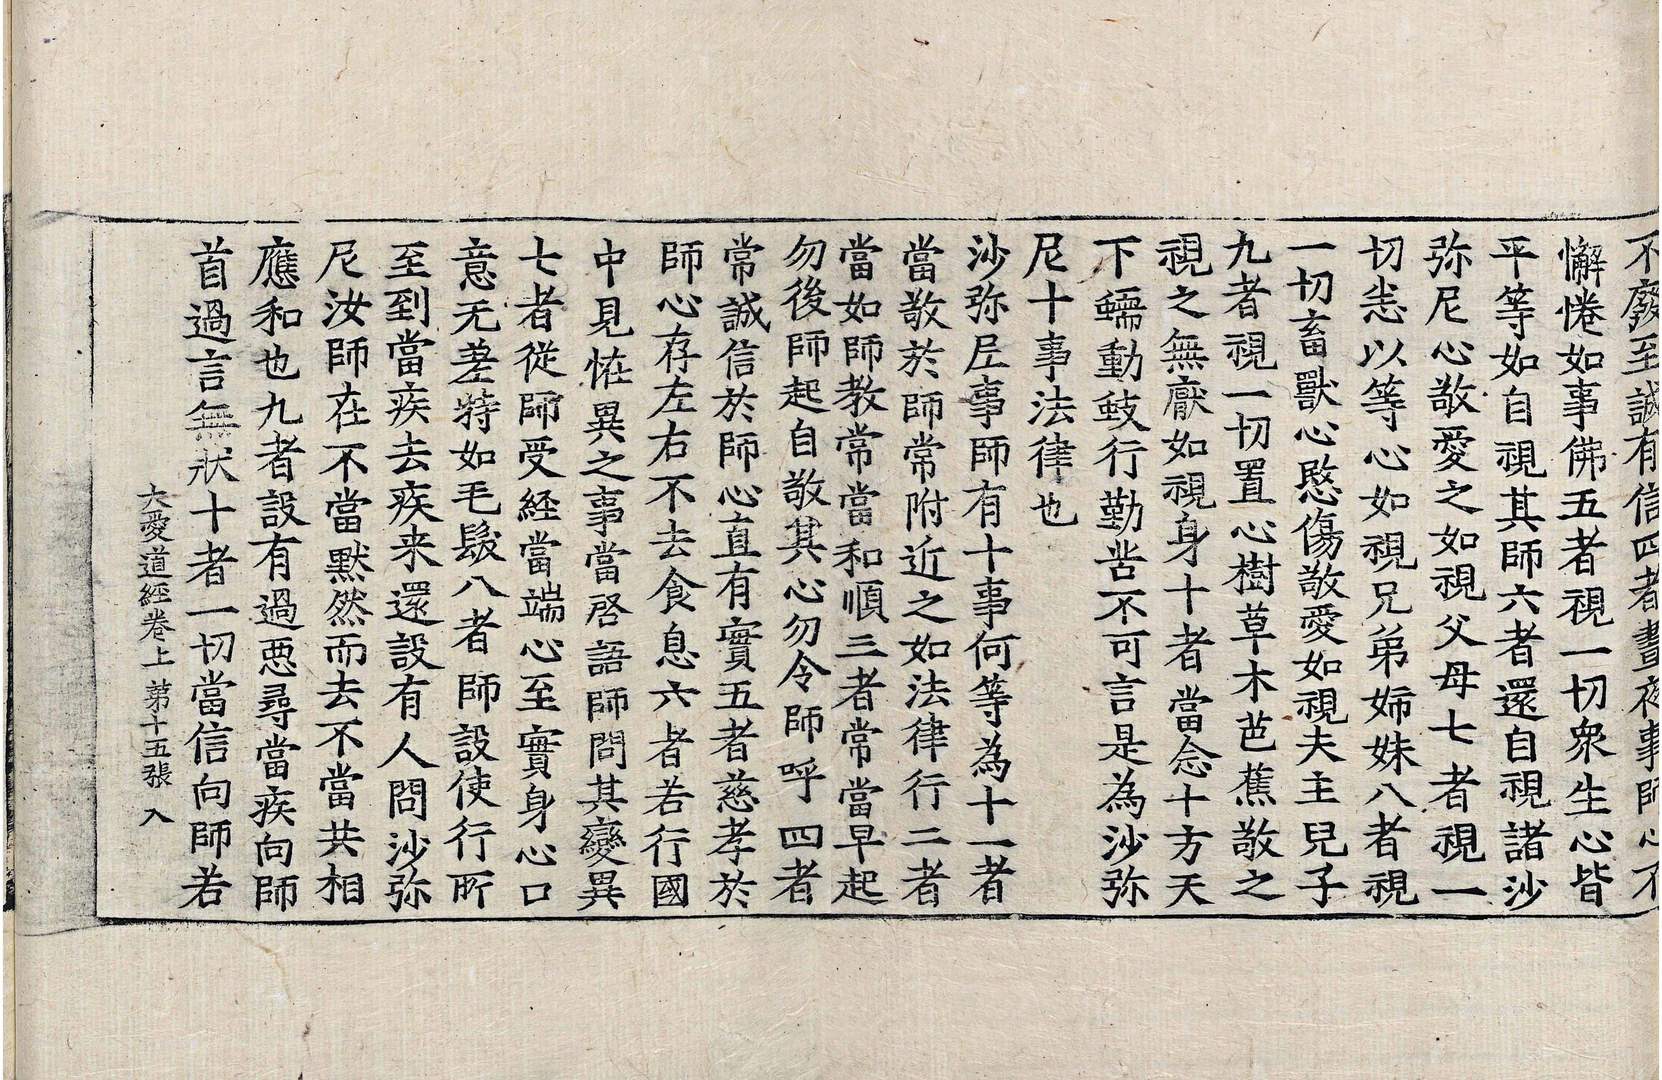 不廢至誠有信四者晝夜事師心不
懈惓如事佛五者視一切衆生心皆
平等如自視其師六者還自視諸沙
弥尼心敬愛之如視父母七者視一
切恙以等心如視兄弟姉妹八者視
一切畜獸心愍傷敬愛如視夫主兒子
九者視一切置心樹草木芭蕉敬之
視之無厭如視身十者當念十方天
下蠕動蚑行勤苦不可言是為沙弥
尼十事法律也
沙弥尼事師有十事何等為十一者
當敬於師常附近之如法律行二者
當如師教常當和順三者常當早起
勿後師起自敬其心勿令師呼四者
常誠信於師心直有實五者慈孝於
師心存左右不去食息六者若行國
中見恠異之事當啓語師問其變異
七者從師受経當端心至實身心口
意无差特如毛髮八者師設使行所
至到當疾去疾来還設有人問沙弥
尼汝師在不當默然而去不當共相
應和也九者設有過惡尋當疾向師
首過言無狀十者一切當信向師若
大愛道經卷上 第十五張 入